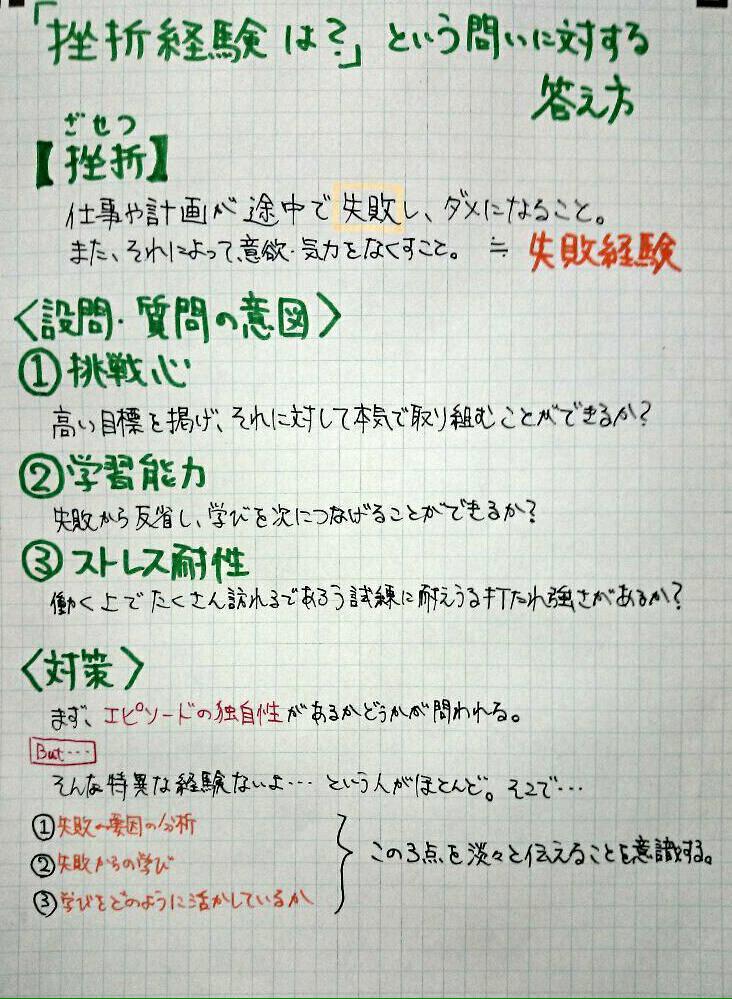 「挫折経験は?」という問いに対する
答え方
ざせつ
【挫折】
仕事や計画が途中で失敗し、ダメになること。
また、それによって意欲・気力をなくすこと。 ≒ 失敗経験
〈設問・質問の意図〉
①挑戦心
高い目標を掲げ、それに対して本気で取り組むことができるか?
②学習能力
失敗から反省し、学びを次につなげることができるか?
③ストレス耐性
働く上でたくさん訪れるであろう試練に耐えうる打たれ強さがあるか?
〈対策〉
まず、エピソードの独自性があるかどうかが問われる。
But…
そんな特異な経験ないよ…という人がほとんど。そこで…
①失敗の要因の分析
②失敗からの学び
③学びをどのように活かしているか
この3点を淡々と伝えることを意識する。